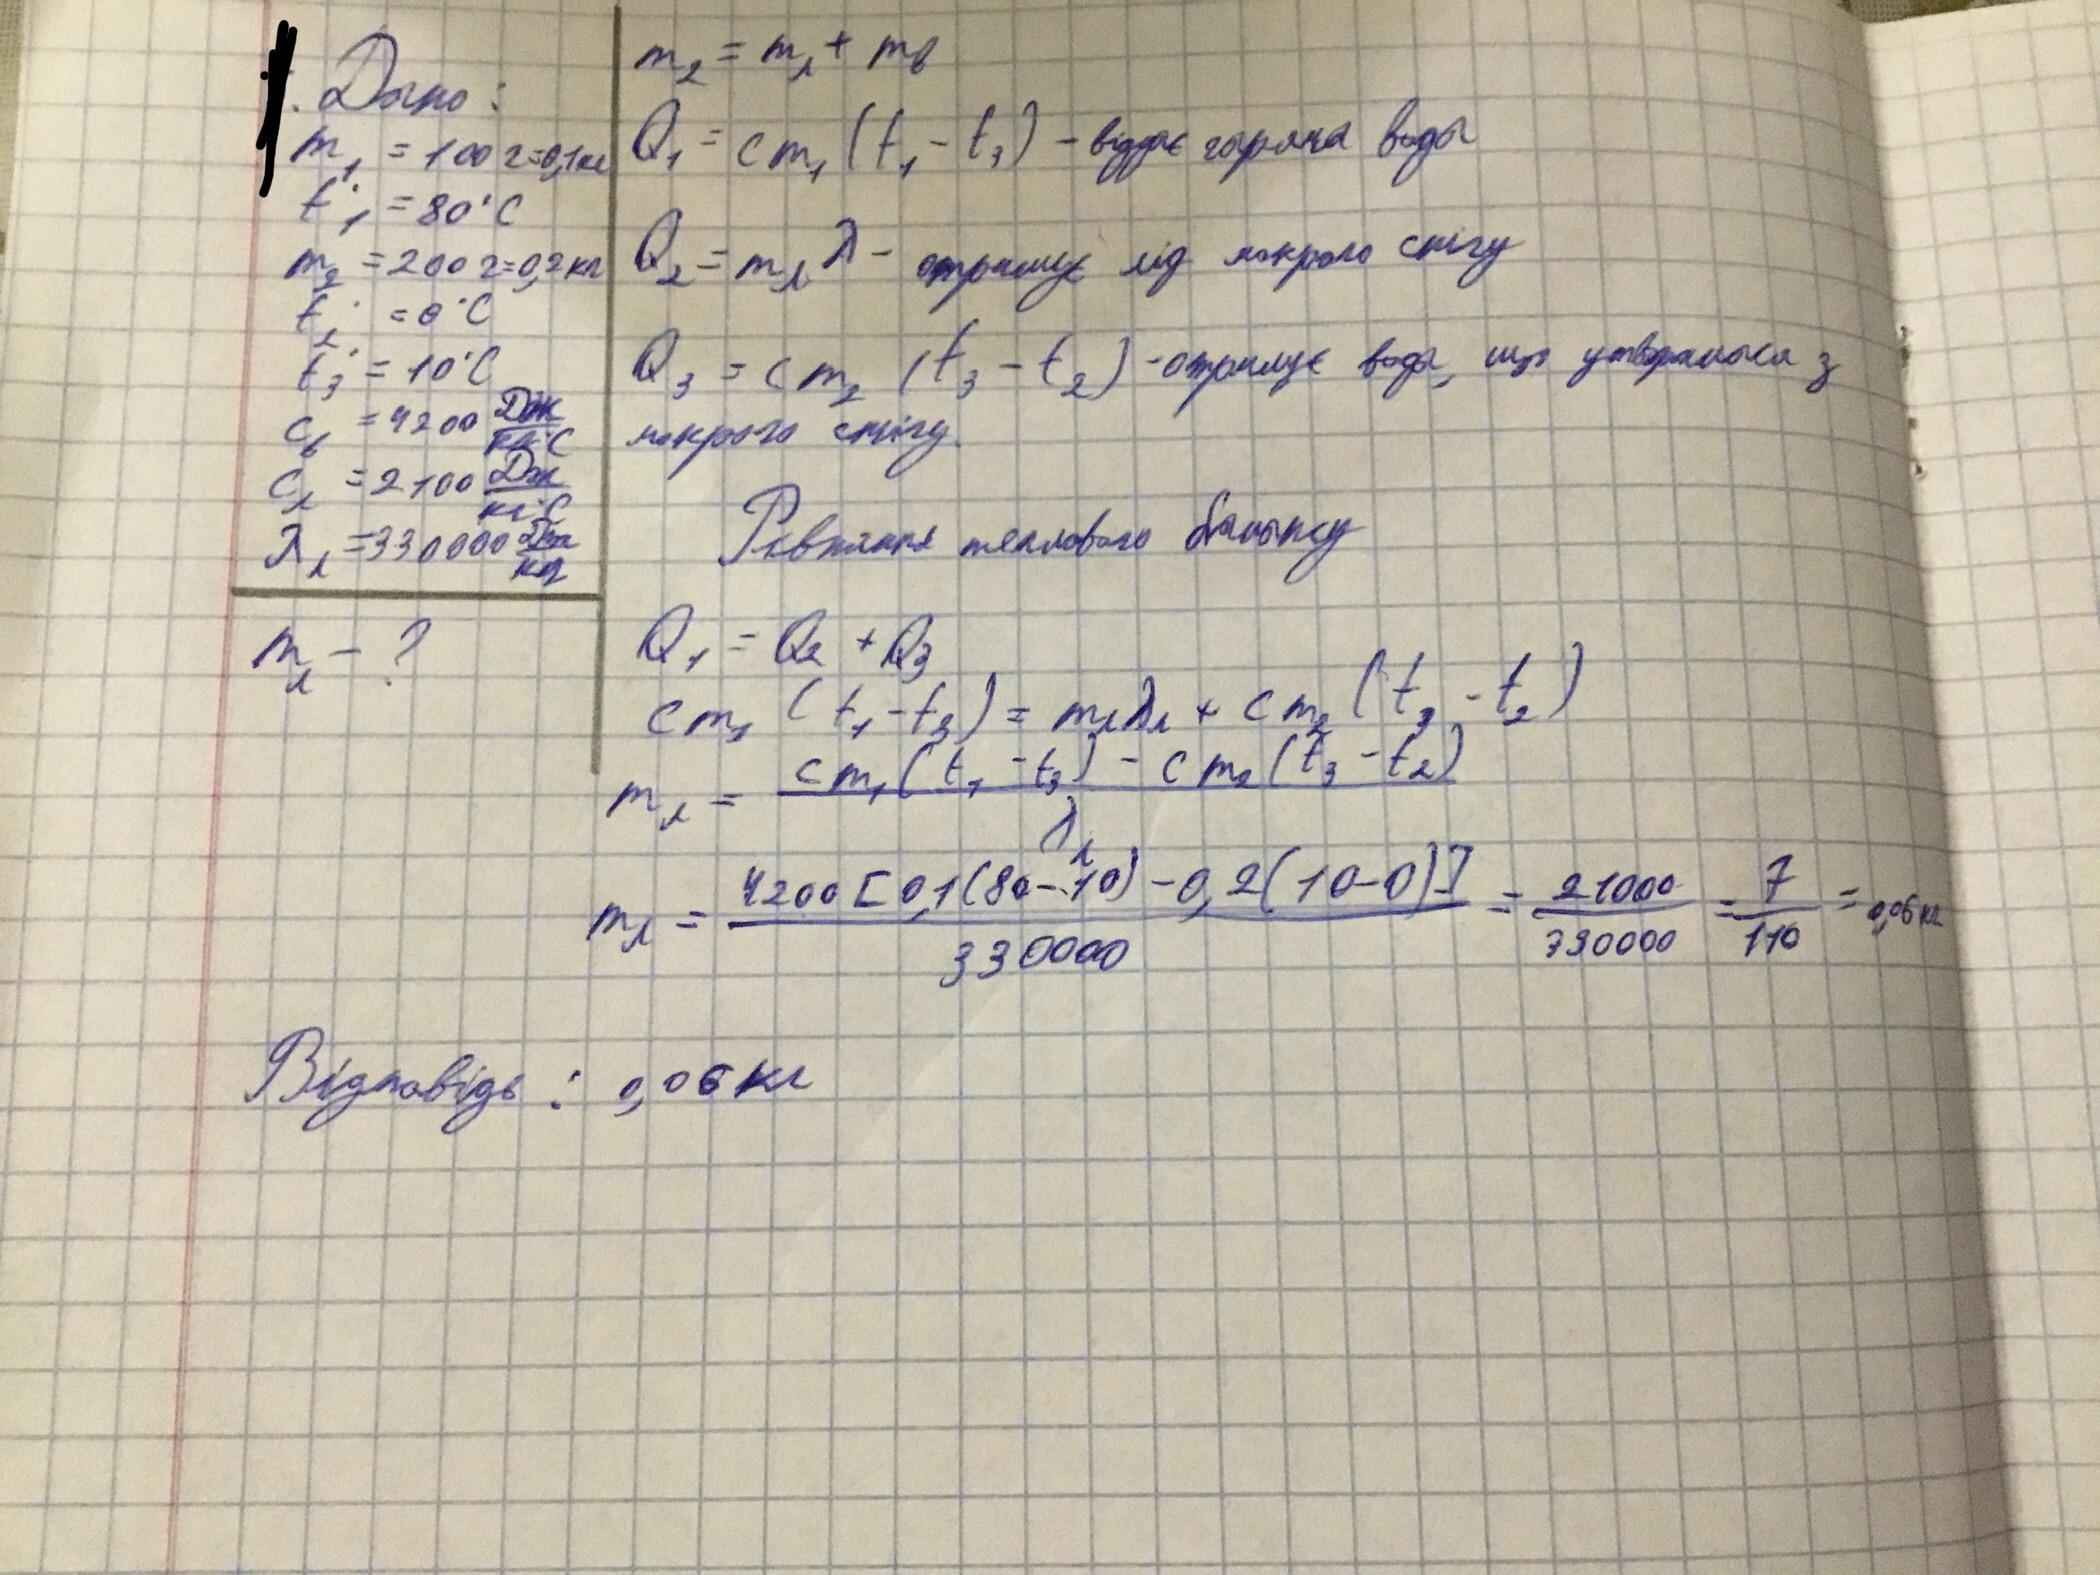 Дано:
m₁ = 100 г = 0,1 кг
t₁ = 80°C
m₂ = 200 г = 0,2 кг
t₂ = 0°C
t₃ = 10°C
cв = 4200 Дж/кг·°C
cл = 2100 Дж/кг·°C
λл = 330000 Дж/кг
mл - ?
m₂ = mл + mв
Q₁ = cm₁(t₁ - t₃) - віддає гаряча вода
Q₂ = mлλ - отримує лід мокрого снігу
Q₃ = cm₂(t₃ - t₂) - отримує вода, що утворилася з
мокрого снігу.
Рівняння теплового балансу
Q₁ = Q₂ + Q₃
cm₁(t₁ - t₃) = mлλл + cm₂(t₃ - t₂)
mл = (cm₁(t₁ - t₃) - cm₂(t₃ - t₂))/λл
mл = 4200[0,1(80-10) - 0,2(10-0)]/330000 = 21000/330000 = 7/110 = 0,06 кг
Відповідь: 0,06 кг